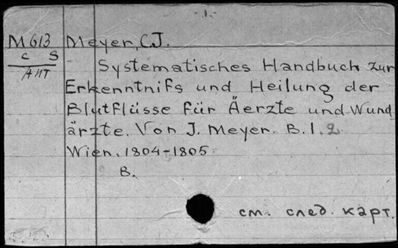 1.
M 613 Meyer, C.J.
c s
АНТ
Systematisches Handbuch zur
Erkenntnifs und Heilung der
Blutflüsse für Äerzte und Wund
ärzte. Von J. Meyer. B. 1. 2
Wien. 1804-1805
B.
см. след. карт.